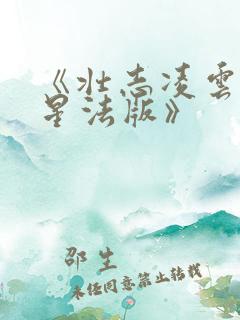 《壮志凌雲
星法版》
邵生
未经同意禁止转载